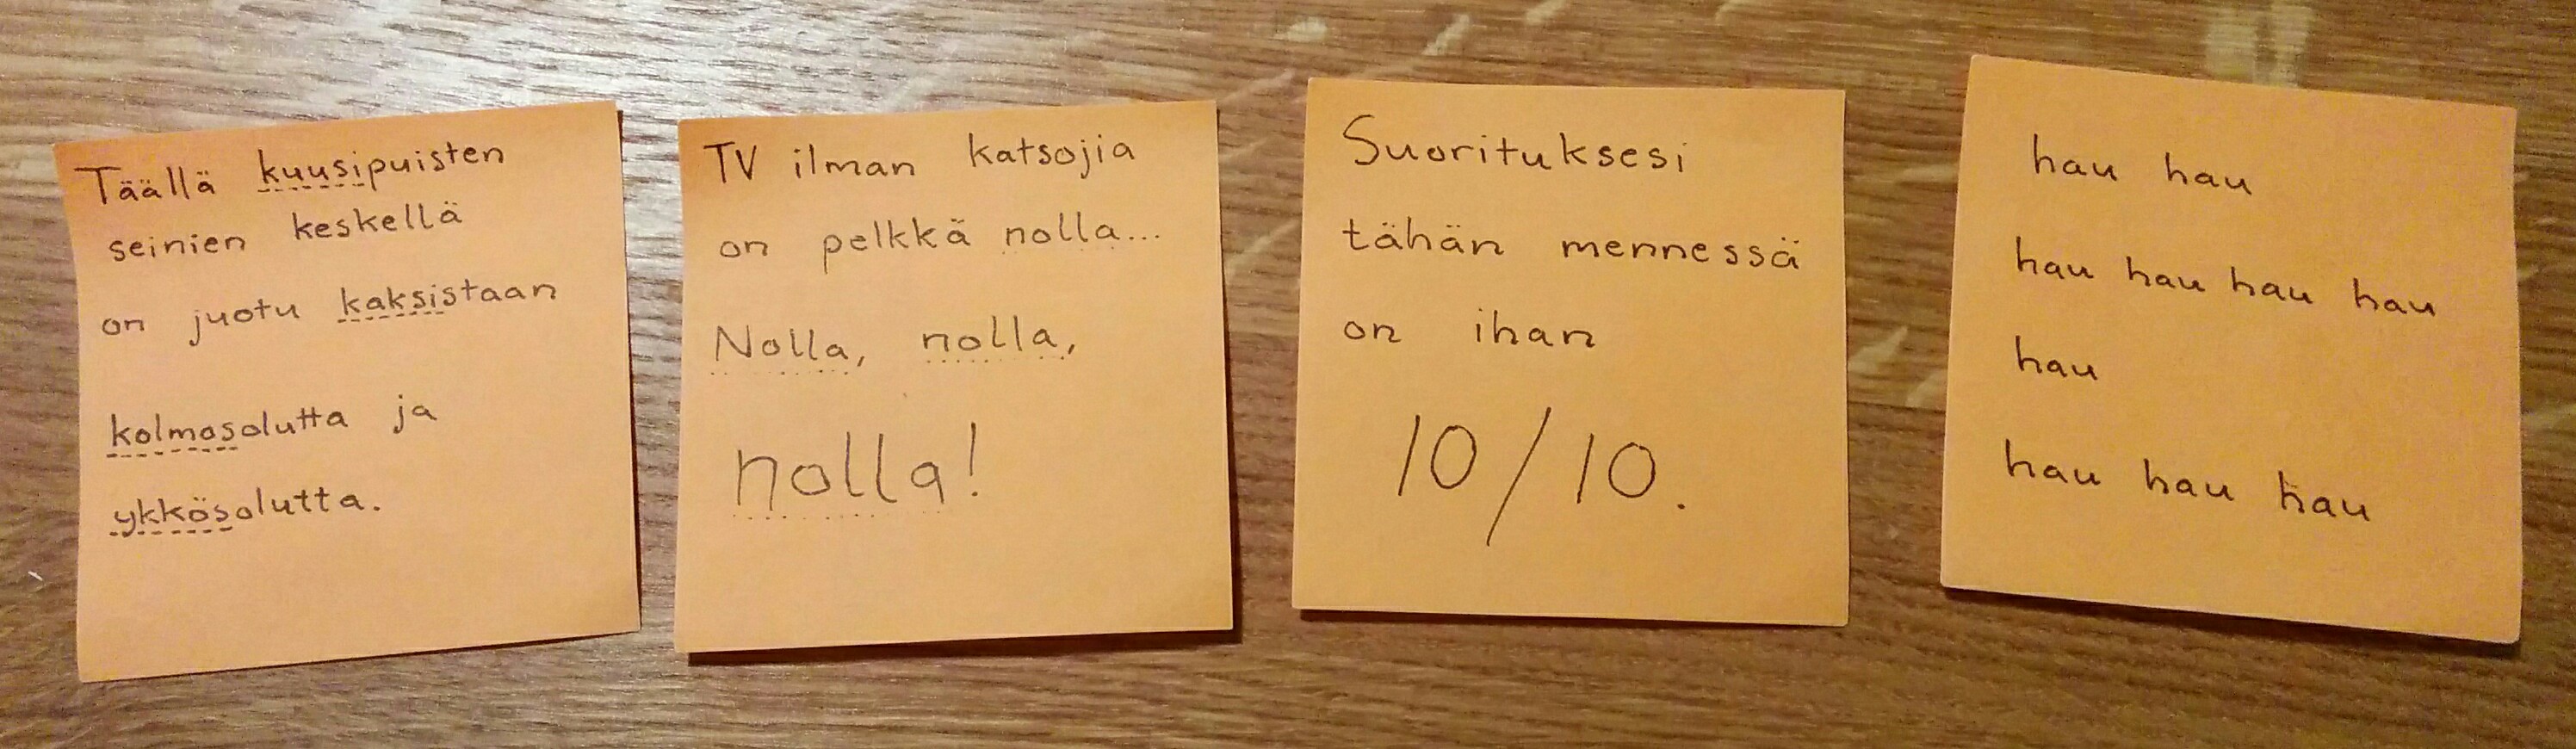 Täällä kuusipuisten
seinien keskellä
on juotu kaksistaan
kolmosolutta ja
ykkösolutta.
TV ilman katsojia
on pelkkä nolla...
Nolla, nolla,
nolla!
Suorituksesi
tähän mennessä
on ihan
10/10.
hau hau
hau hau hau hau
hau
hau hau hau